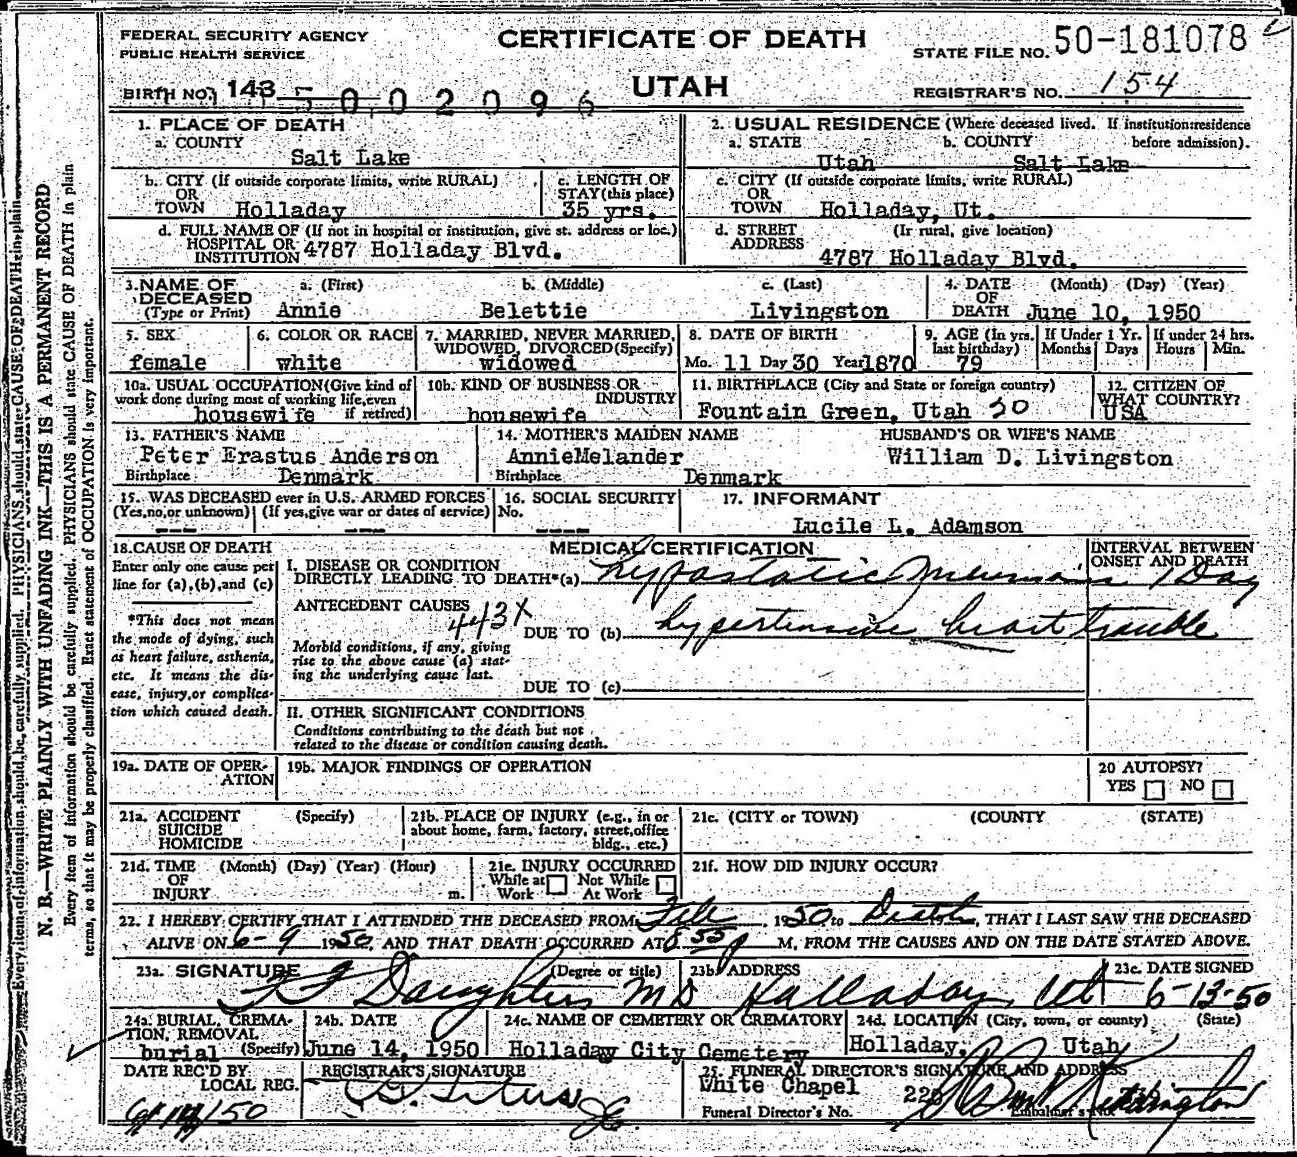 FEDERAL SECURITY AGENCY
PUBLIC HEALTH SERVICE
CERTIFICATE OF DEATH
UTAH
STATE FILE NO. 50-181078
BIRTH NO. 143 5 0 0 2 0 9 6
REGISTRAR'S NO. 154
1. PLACE OF DEATH
a. COUNTY
Salt Lake
2. USUAL RESIDENCE (Where deceased lived. If institution:residence before admission).
a. STATE b. COUNTY
Utah Salt Lake
b. CITY (If outside corporate limits, write RURAL)
OR
TOWN Holladay
c. LENGTH OF
STAY (this place)
35 yrs.
c. CITY (If outside corporate limits, write RURAL)
OR
TOWN Holladay, Ut.
d. FULL NAME OF (If not in hospital or institution, give st. address or loc.)
HOSPITAL OR
INSTITUTION 4787 Holladay Blvd.
d. STREET (If rural, give location)
ADDRESS
4787 Holladay Blvd.
3. NAME OF DECEASED
(Type or Print)
a. (First) b. (Middle) c. (Last)
Annie Belettie Livingston
4. DATE OF DEATH (Month) (Day) (Year)
June 10, 1950
5. SEX
female
6. COLOR OR RACE
white
7. MARRIED, NEVER MARRIED,
WIDOWED, DIVORCED (Specify)
widowed
8. DATE OF BIRTH
Mo. 11 Day 30 Year 1870
9. AGE (In yrs. last birthday)
79
If Under 1 Yr.
Months Days
If under 24 hrs.
Hours Min.
10a. USUAL OCCUPATION (Give kind of
work done during most of working life, even
if retired)
housewife
10b. KIND OF BUSINESS OR
INDUSTRY
housewife
11. BIRTHPLACE (City and State or foreign country)
Fountain Green, Utah 20
12. CITIZEN OF
WHAT COUNTRY?
USA
13. FATHER'S NAME
Peter Erastus Anderson
Birthplace Denmark
14. MOTHER'S MAIDEN NAME
AnnieMelander
Birthplace Denmark
HUSBAND'S OR WIFE'S NAME
William D. Livingston
15. WAS DECEASED ever in U.S. ARMED FORCES
(Yes, no, or unknown) (If yes, give war or dates of service)
--- ---
16. SOCIAL SECURITY
No.
----
17. INFORMANT
Lucile L. Adamson
18. CAUSE OF DEATH
Enter only one cause per
line for (a), (b), and (c)
*This does not mean
the mode of dying, such
as heart failure, asthenia,
etc. It means the dis-
ease, injury, or complica-
tion which caused death.
MEDICAL CERTIFICATION
INTERVAL BETWEEN
ONSET AND DEATH
I. DISEASE OR CONDITION
DIRECTLY LEADING TO DEATH*(a) hypostatic Pneumonia 1 Day
ANTECEDENT CAUSES
443X
DUE TO (b) hypertensive heart trouble
Morbid conditions, if any, giving
rise to the above cause (a) stat-
ing the underlying cause last.
DUE TO (c)
II. OTHER SIGNIFICANT CONDITIONS
Conditions contributing to the death but not
related to the disease or condition causing death.
19a. DATE OF OPER-
ATION
19b. MAJOR FINDINGS OF OPERATION
20 AUTOPSY?
YES NO
21a. ACCIDENT (Specify)
SUICIDE
HOMICIDE
21b. PLACE OF INJURY (e.g., in or
about home, farm, factory, street, office
bldg., etc.)
21c. (CITY or TOWN) (COUNTY (STATE)
21d. TIME (Month) (Day) (Year) (Hour)
OF
INJURY m.
21e. INJURY OCCURRED
While at Work Not While At Work
21f. HOW DID INJURY OCCUR?
22. I HEREBY CERTIFY THAT I ATTENDED THE DECEASED FROM Feb 1950 to Death, THAT I LAST SAW THE DECEASED
ALIVE ON 6-9 1950, AND THAT DEATH OCCURRED AT 6:55 p M, FROM THE CAUSES AND ON THE DATE STATED ABOVE.
23a. SIGNATURE (Degree or title)
Daughters MD
23b. ADDRESS
Holladay Ut
23c. DATE SIGNED
6-13-50
24a. BURIAL, CREMA-
TION, REMOVAL
burial (Specify)
24b. DATE
June 14, 1950
24c. NAME OF CEMETERY OR CREMATORY
Holladay City Cemetery
24d. LOCATION (City, town, or county) (State)
Holladay, Utah
DATE REC'D BY
LOCAL REG.
REGISTRAR'S SIGNATURE
25. FUNERAL DIRECTOR'S SIGNATURE AND ADDRESS
White Chapel
Funeral Director's No.
Embalmer's No.
N. B.—WRITE PLAINLY WITH UNFADING INK—THIS IS A PERMANENT RECORD
Every item of information should be carefully supplied. PHYSICIANS should state CAUSE OF DEATH in plain
terms, so that it may be properly classified. Exact statement of OCCUPATION is very important.
Every item of information should be carefully supplied. PHYSICIANS should state CAUSE OF DEATH in plain